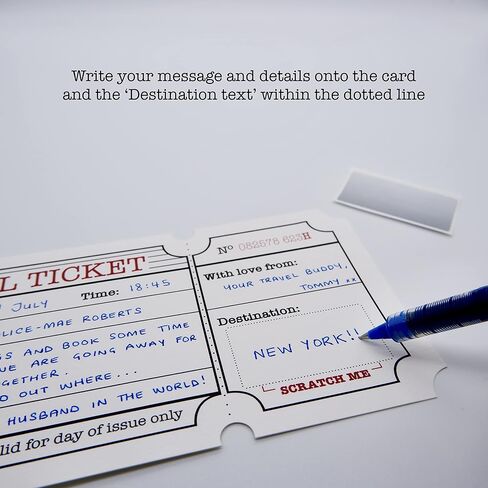 Write your message and details onto the card
and the ‘Destination text’ within the dotted line
L TICKET
JULY Time: 18:45
LICE-MAE ROBERTS
GS AND BOOK SOME TIME
WE ARE GOING AWAY FOR
OGETHER.
D OUT WHERE...
HUSBAND IN THE WORLD!
lid for day of issue only
Nº 082578 623H
With love from:
YOUR TRAVEL BUDDY,
TOMMY xx
Destination:
NEW YORK!!
SCRATCH ME